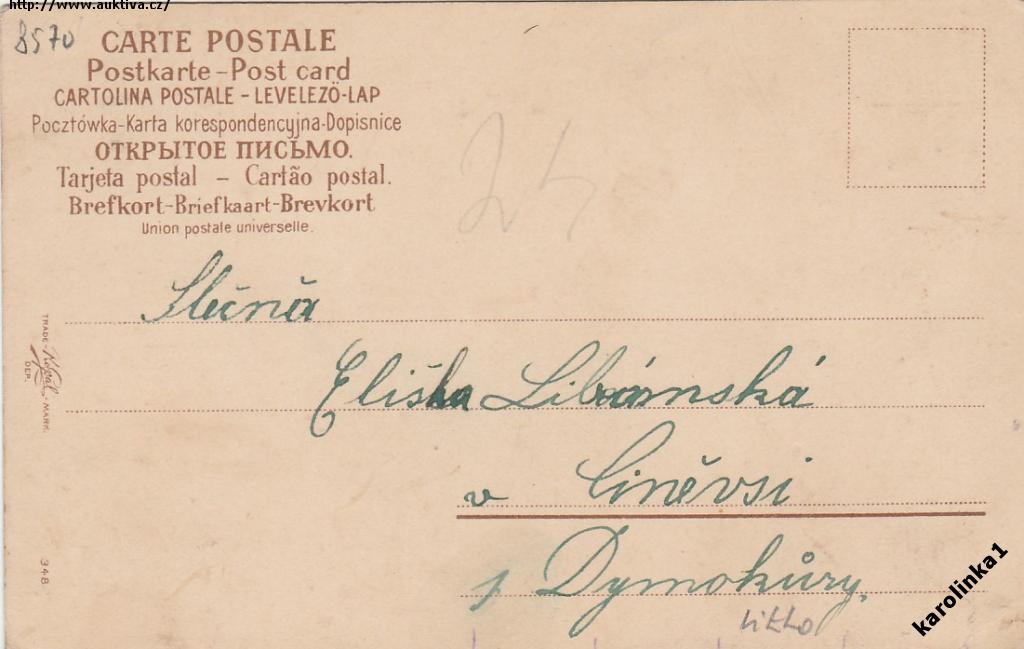 http://www.auktiva.cz/
8570
CARTE POSTALE
Postkarte - Post card
CARTOLINA POSTALE - LEVELEZÖ-LAP
Pocztówka-Karta korespondencyjna-Dopisnice
ОТКРЫТОЕ ПИСЬМО.
Tarjeta postal - Cartão postal.
Brefkort-Briefkaart-Brevkort
Union postale universelle.
24
Slečna
Eliška Libánská
v Činěvsi
p Dymokůry.
TRADE - MARK.
DEP.
348
karolinka1